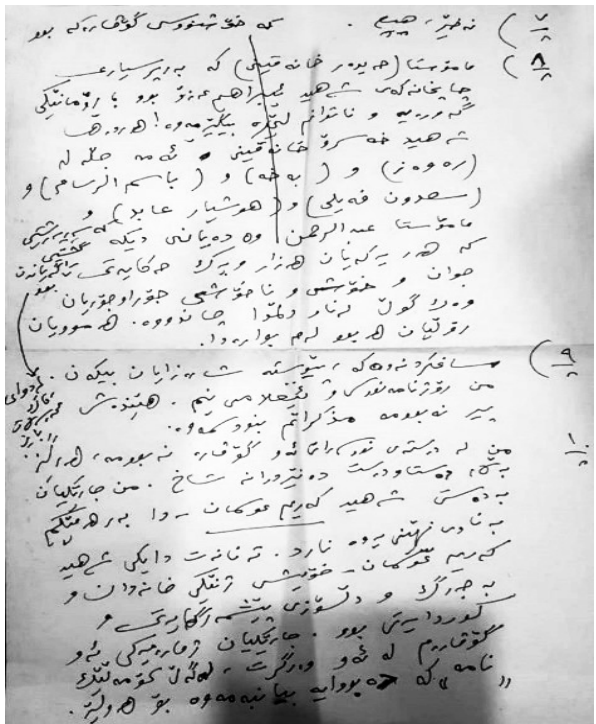 ٧) نەخێر، هیچ. کە خۆشنووسی گۆڤارەکە بوو
٨) مامۆستا (حەیدەر خانەقینی) کە بەرپرسیاری
چاپخانەکەی شەهید ئیبراهیم عەزۆ بوو
گەورەیە و ناتوانم لێرە بیگێڕمەوە! هەروەها
شەهید خەسرۆ خانەقینی و لە
(رەوەز) و (بەخە) و (باسم الرسام) و
(سعدون فەیلی) و (هوشیار عابد) و
مامۆستا عبدالرحمن وە دەیانی دیکە
کە هەر یەکەیان هەزار و یەک حەکایەتی
جوان و خۆش و ناخۆشی جۆراوجۆریان
وەک گوڵ لەناو دڵمدا چاندووە. هەموویان
رۆڵیان هەبوو لەم بوارەدا.
٩) ساغکردنەوەکە، پێویستە شارەزایان بیکەن.
من رۆژنامەنووس و نیم. هێندەش
پیر نەبوومە مذكراتم بنووسمەوە.
١٠ من لە دەستەی نووسەرانی ئەو گۆڤارە نەبوومە، هەولێر
دەستاودەست دەنێردرانە شاخ. من جارێکیان
بەدەستی شەهید کەریم عوسمان بەرهەمێکم
بە ناوی نهێنییەوە نارد. تەنانەت دایکی شەهید
کەریم عوسمان خۆیشی ژنێکی خانەدان و
بە جەرگ و دڵسۆزی پێشمەرگایەتی و
کوردایەتی بوو. جارێکیان ژمارەیەکی ئەو
گۆڤارەم لەو وەرگرت، لەگەڵ کۆمەڵێک
"نامە" کە دەبووایە بیانبەمەوە بۆ هەولێر.